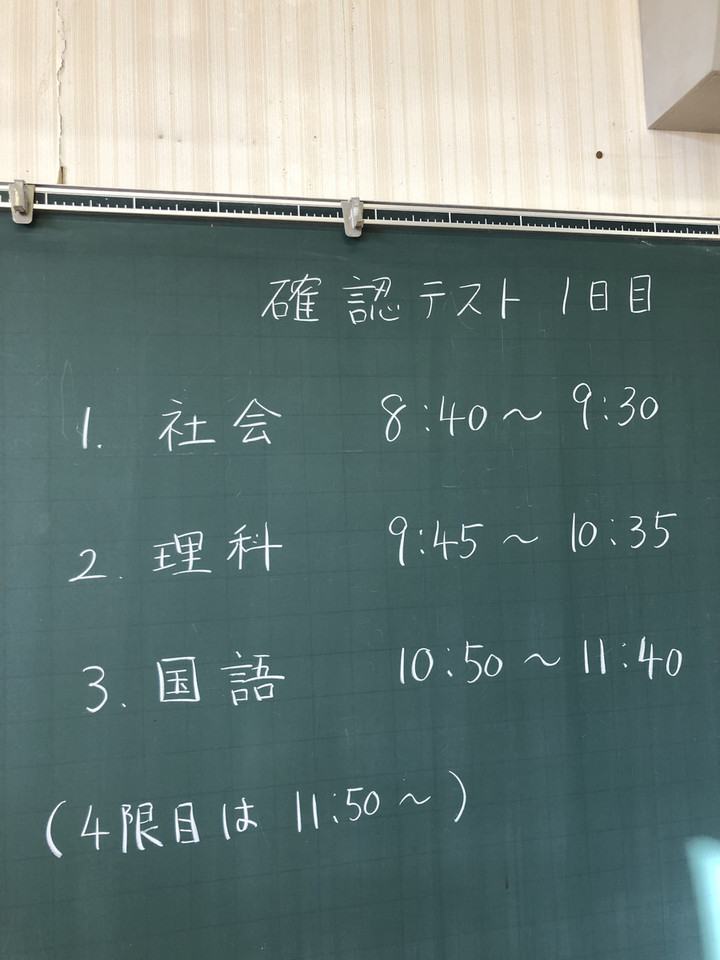 確認テスト 1日目
1. 社会 8:40～9:30
2. 理科 9:45～10:35
3. 国語 10:50～11:40
(4限目は 11:50～)